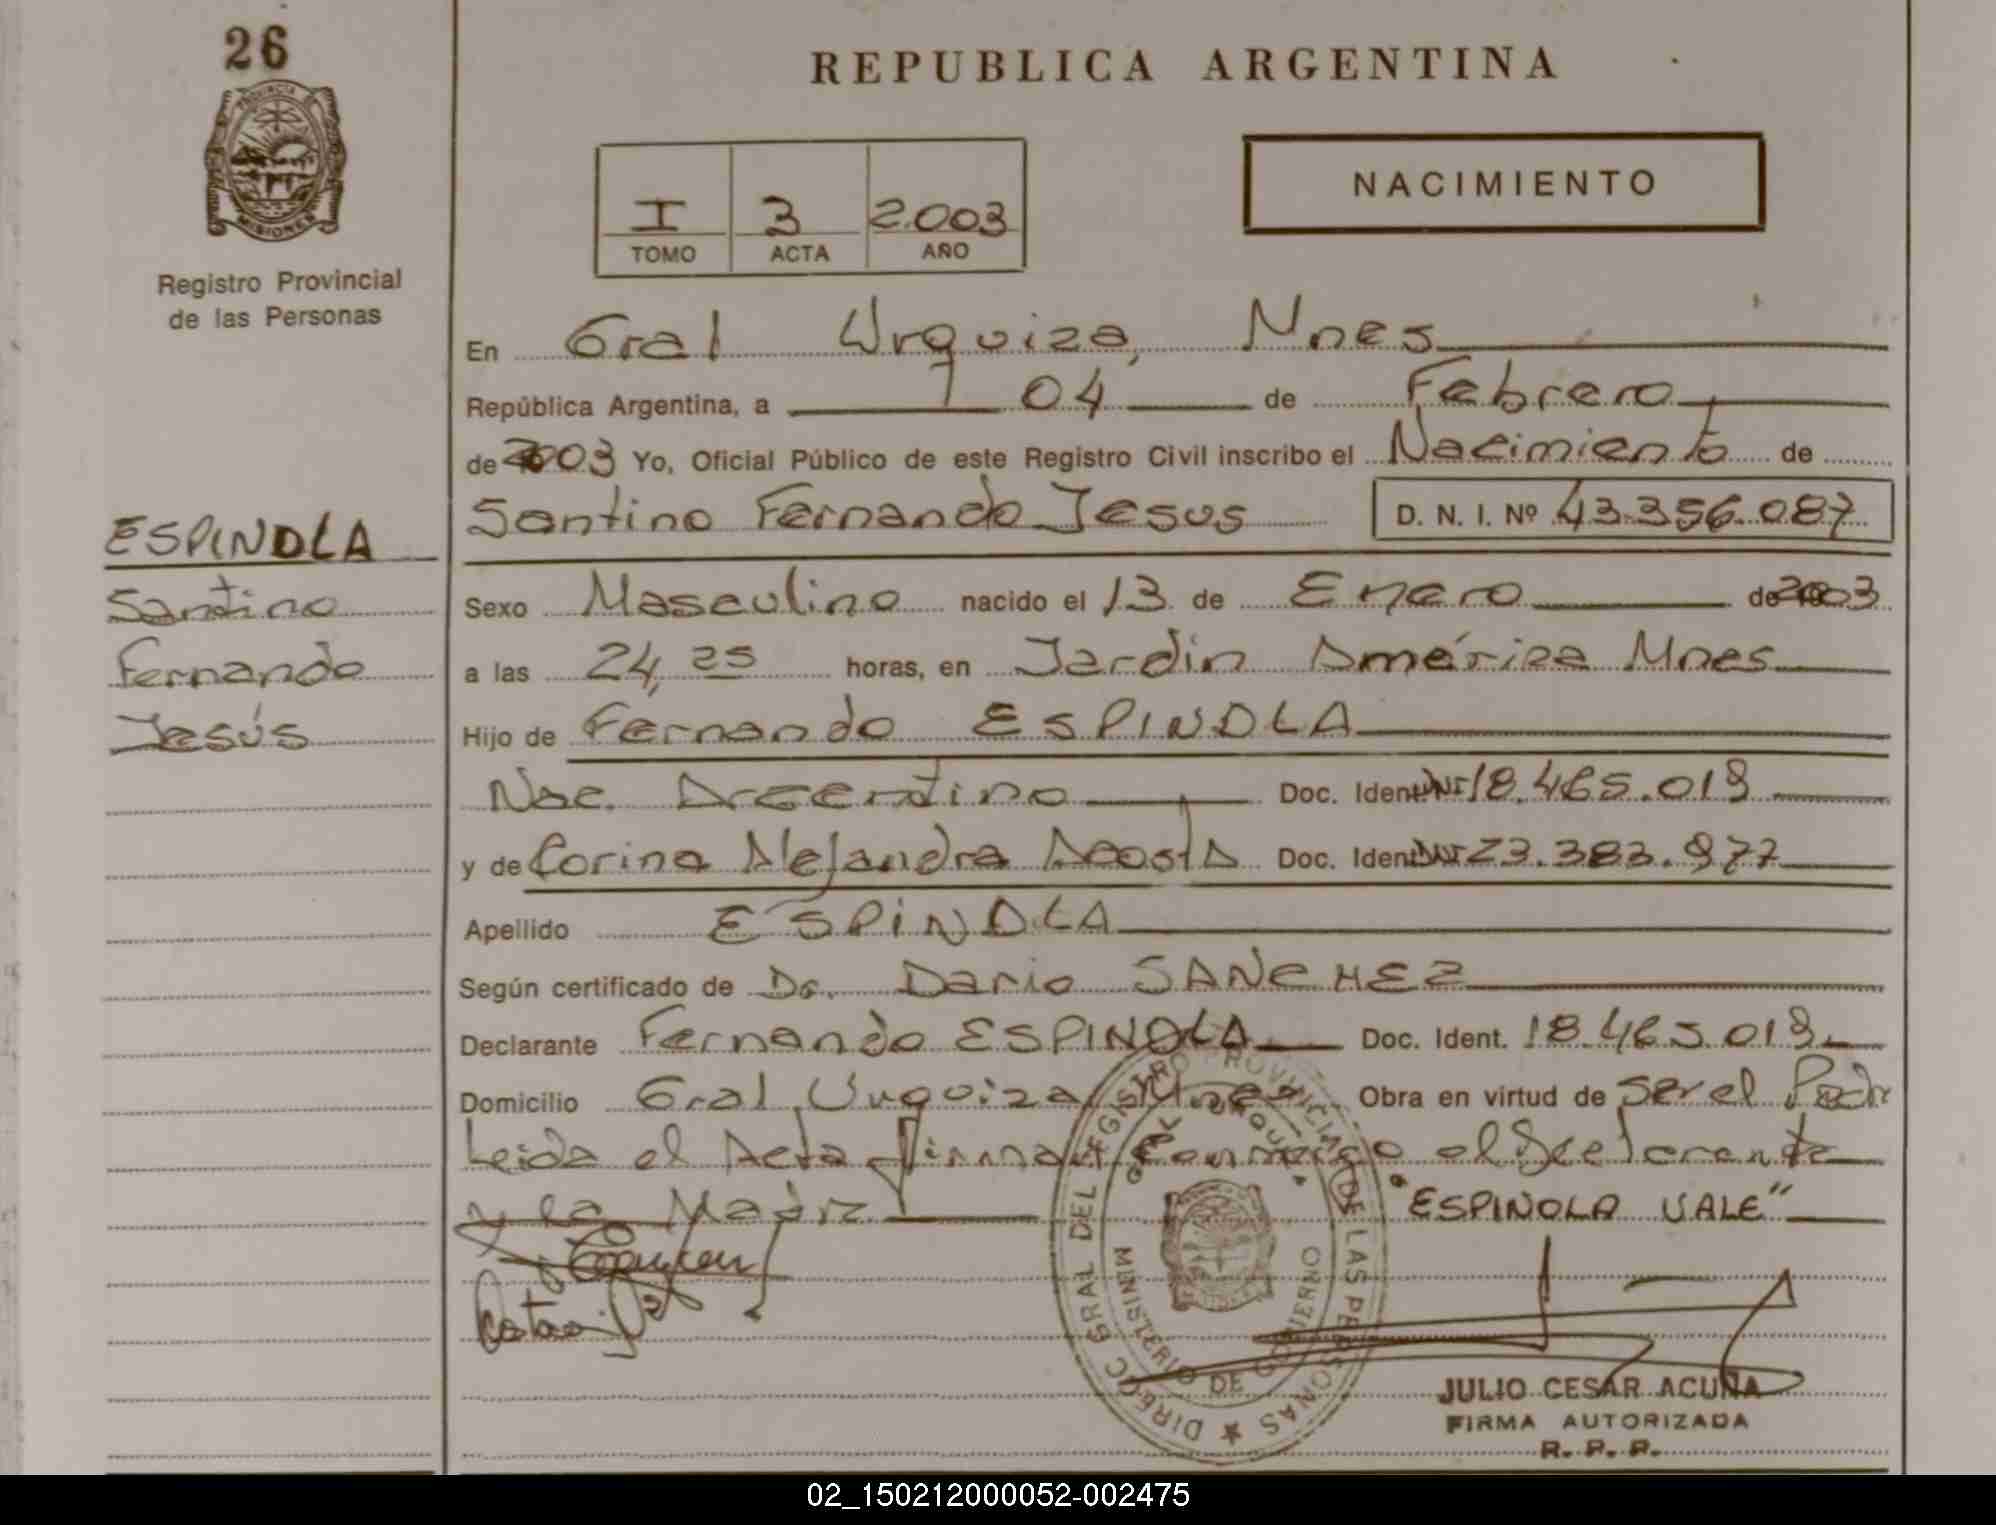 26
PROVINCIA DE
MISIONES
Registro Provincial
de las Personas
ESPINOLA
Santino
Fernando
Jesús
REPUBLICA ARGENTINA
I 3 2.003
TOMO ACTA AÑO
NACIMIENTO
En Gral Urquiza, Mnes
República Argentina, a 04 de Febrero
de 2003 Yo, Oficial Público de este Registro Civil inscribo el Nacimiento de
Santino Fernando Jesus D. N. I. Nº 43.356.087
Sexo Masculino nacido el 13 de Enero de 2003
a las 24,25 horas, en Jardin América Mnes
Hijo de Fernando ESPINOLA
Nac. Argentino Doc. Ident. DNI 18.465.019
y de Corina Alejandra Acosta Doc. Ident. DNI 23.383.977
Apellido ESPINOLA
Según certificado de Dr. Dario SANCHEZ
Declarante Fernando ESPINOLA Doc. Ident. 18.465.019
Domicilio Gral Urquiza Mnes Obra en virtud de ser el Padre
Leida el Acta firman Conmigo el Declarante
y la Madre "ESPINOLA VALE"
DIRECC GRAL DEL REGISTRO PROVINCIAL DE LAS PERSONAS
GRAL URQUIZA
MINISTERIO DE GOBIERNO
JULIO CESAR ACUÑA
FIRMA AUTORIZADA
R. P. P.
02_150212000052-002475